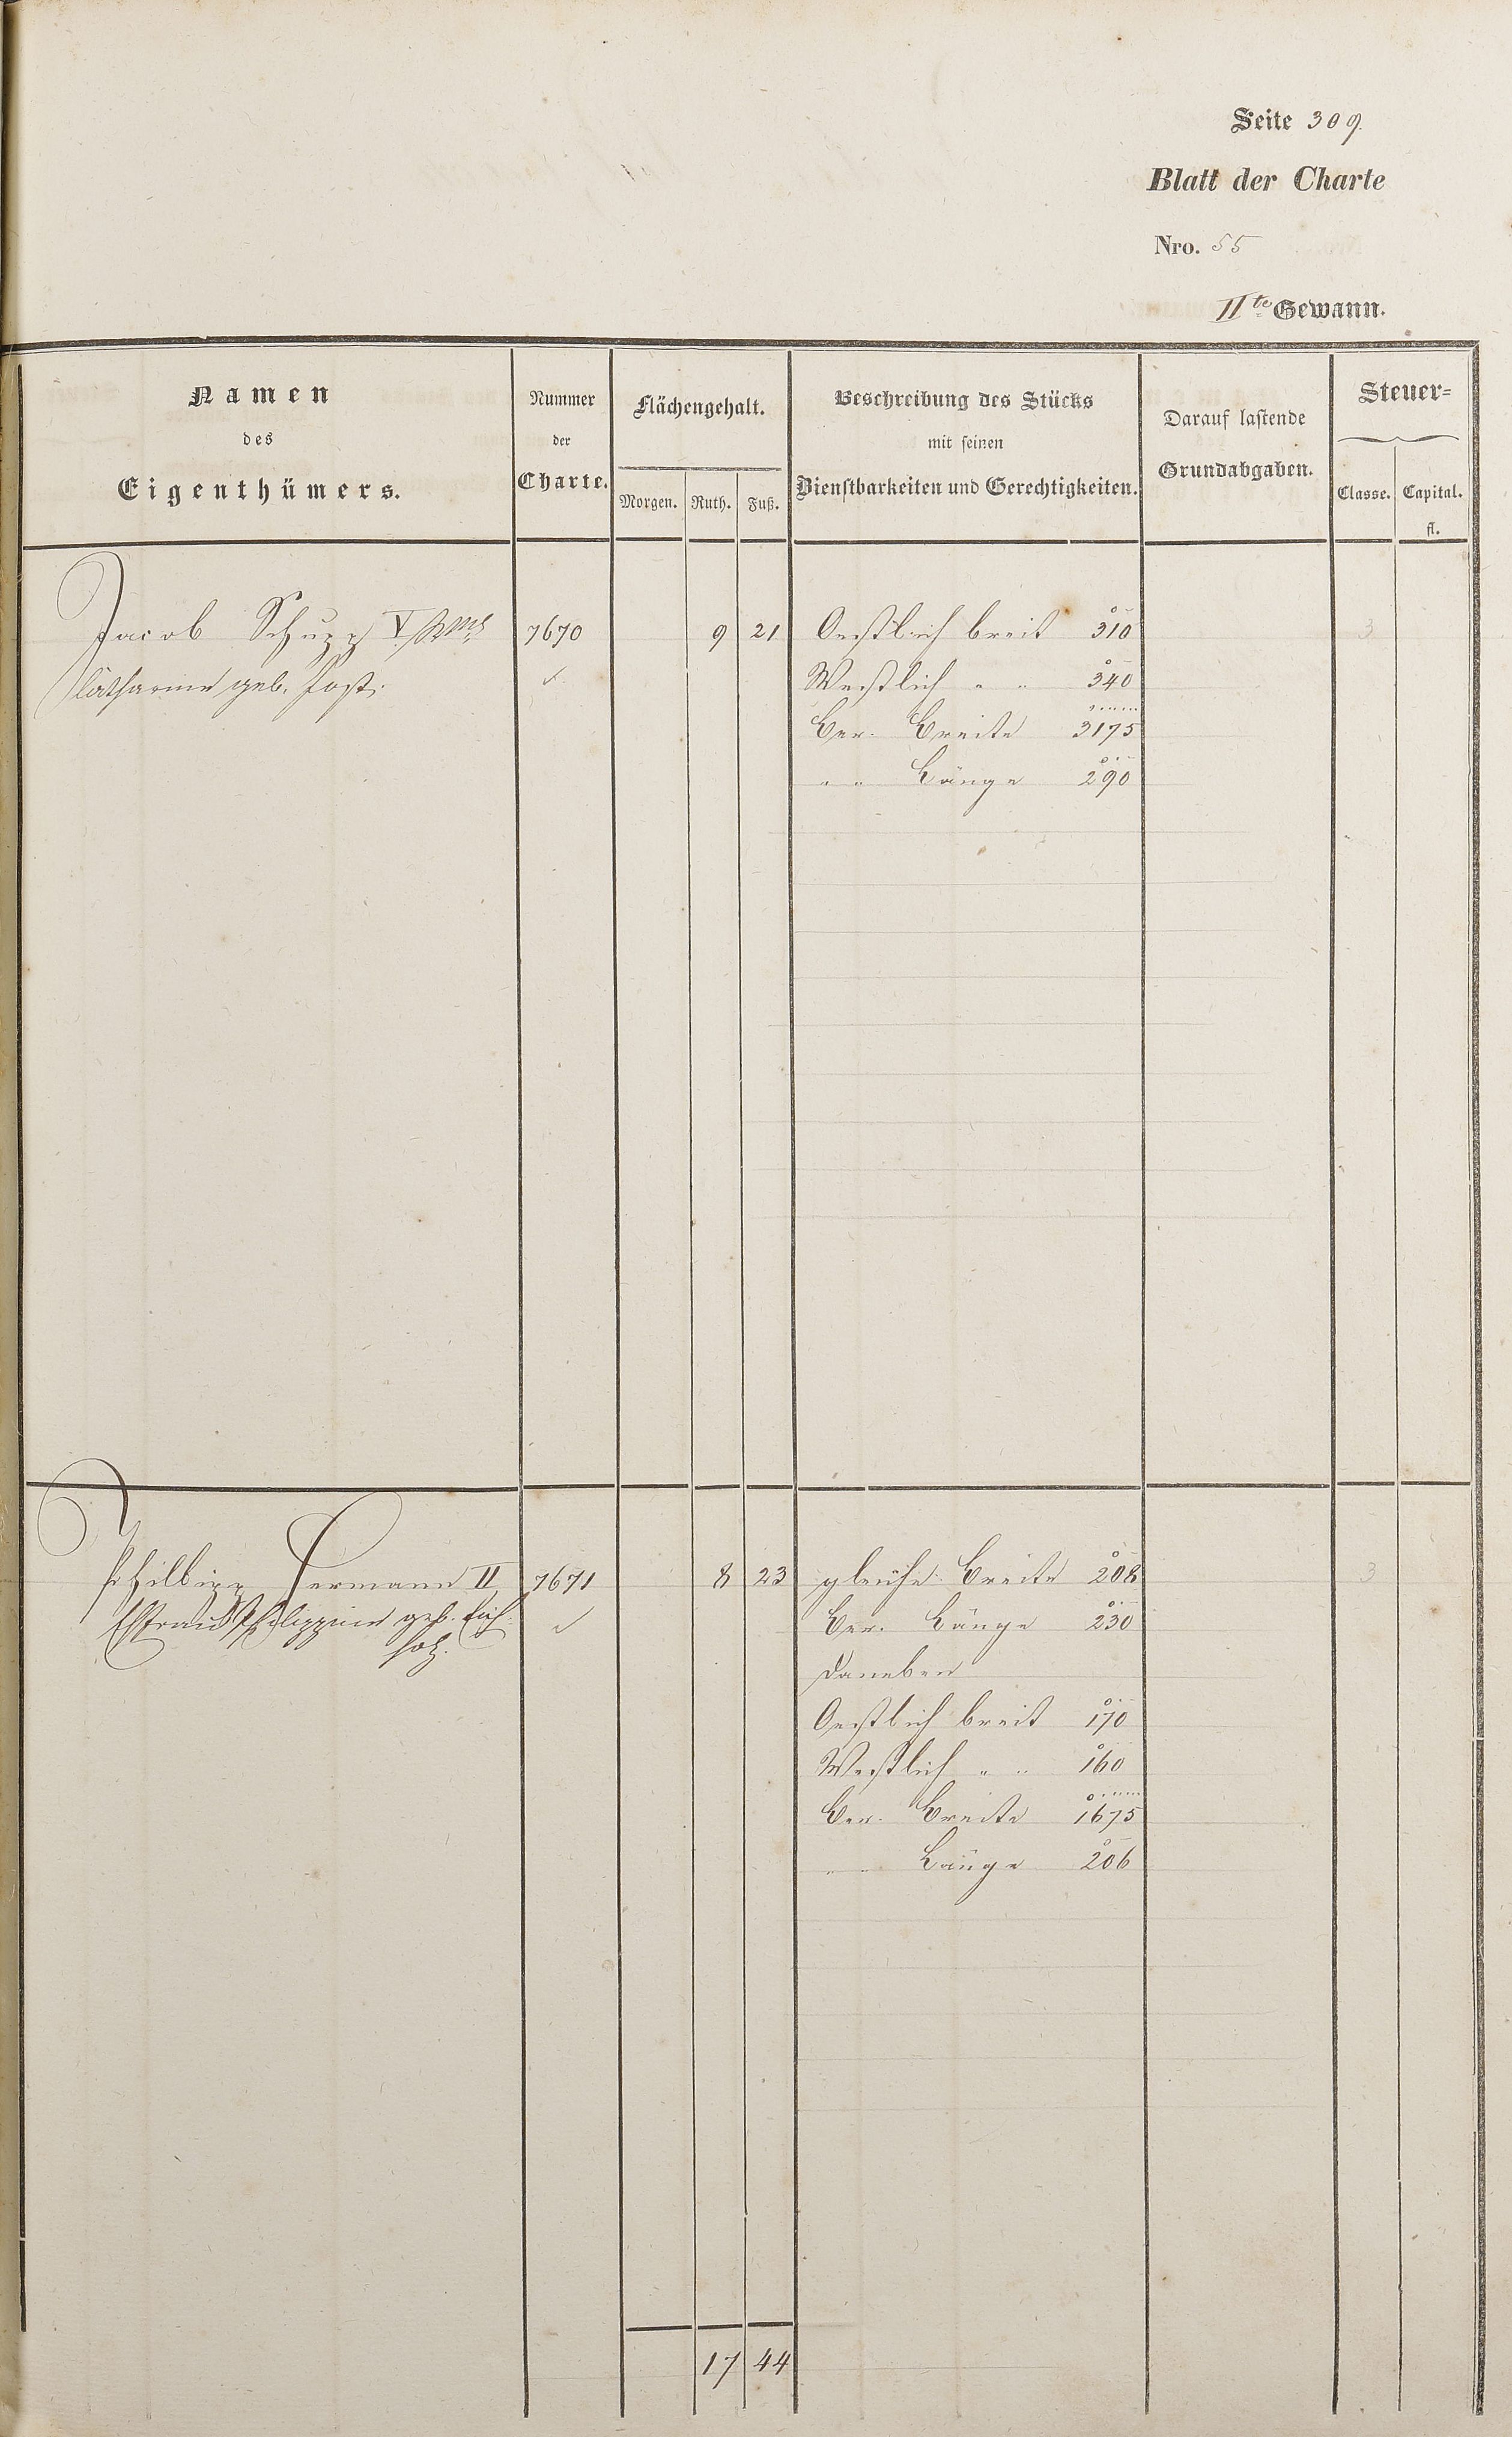 Seite 309.
Blatt der Charte
Nro. 55
IIte Gewann.
Namen
des
Eigenthümers.
Nummer
der
Charte.
Flächengehalt.
Morgen. Ruth. Fuß.
Beschreibung des Stücks
mit seinen
Dienstbarkeiten und Gerechtigkeiten.
Darauf lastende
Grundabgaben.
Steuer=
Classe. Capital.
fl.
Jacob Schupp V 7670 9 21 Oestlich breit 310 3
Catharine geb. Jost. Westlich " " 340
Ber. Breite 3175
" " Länge 290
Philipp Hermann II 7671 8 23 gleiche Breite 208 3
Ehefrau Philippine geb. Eich= Ber. Länge 230
holz.
Daneben
Oestlich breit 170
Westlich " " 160
Ber. Breite 1675
" " Länge 206
17 44